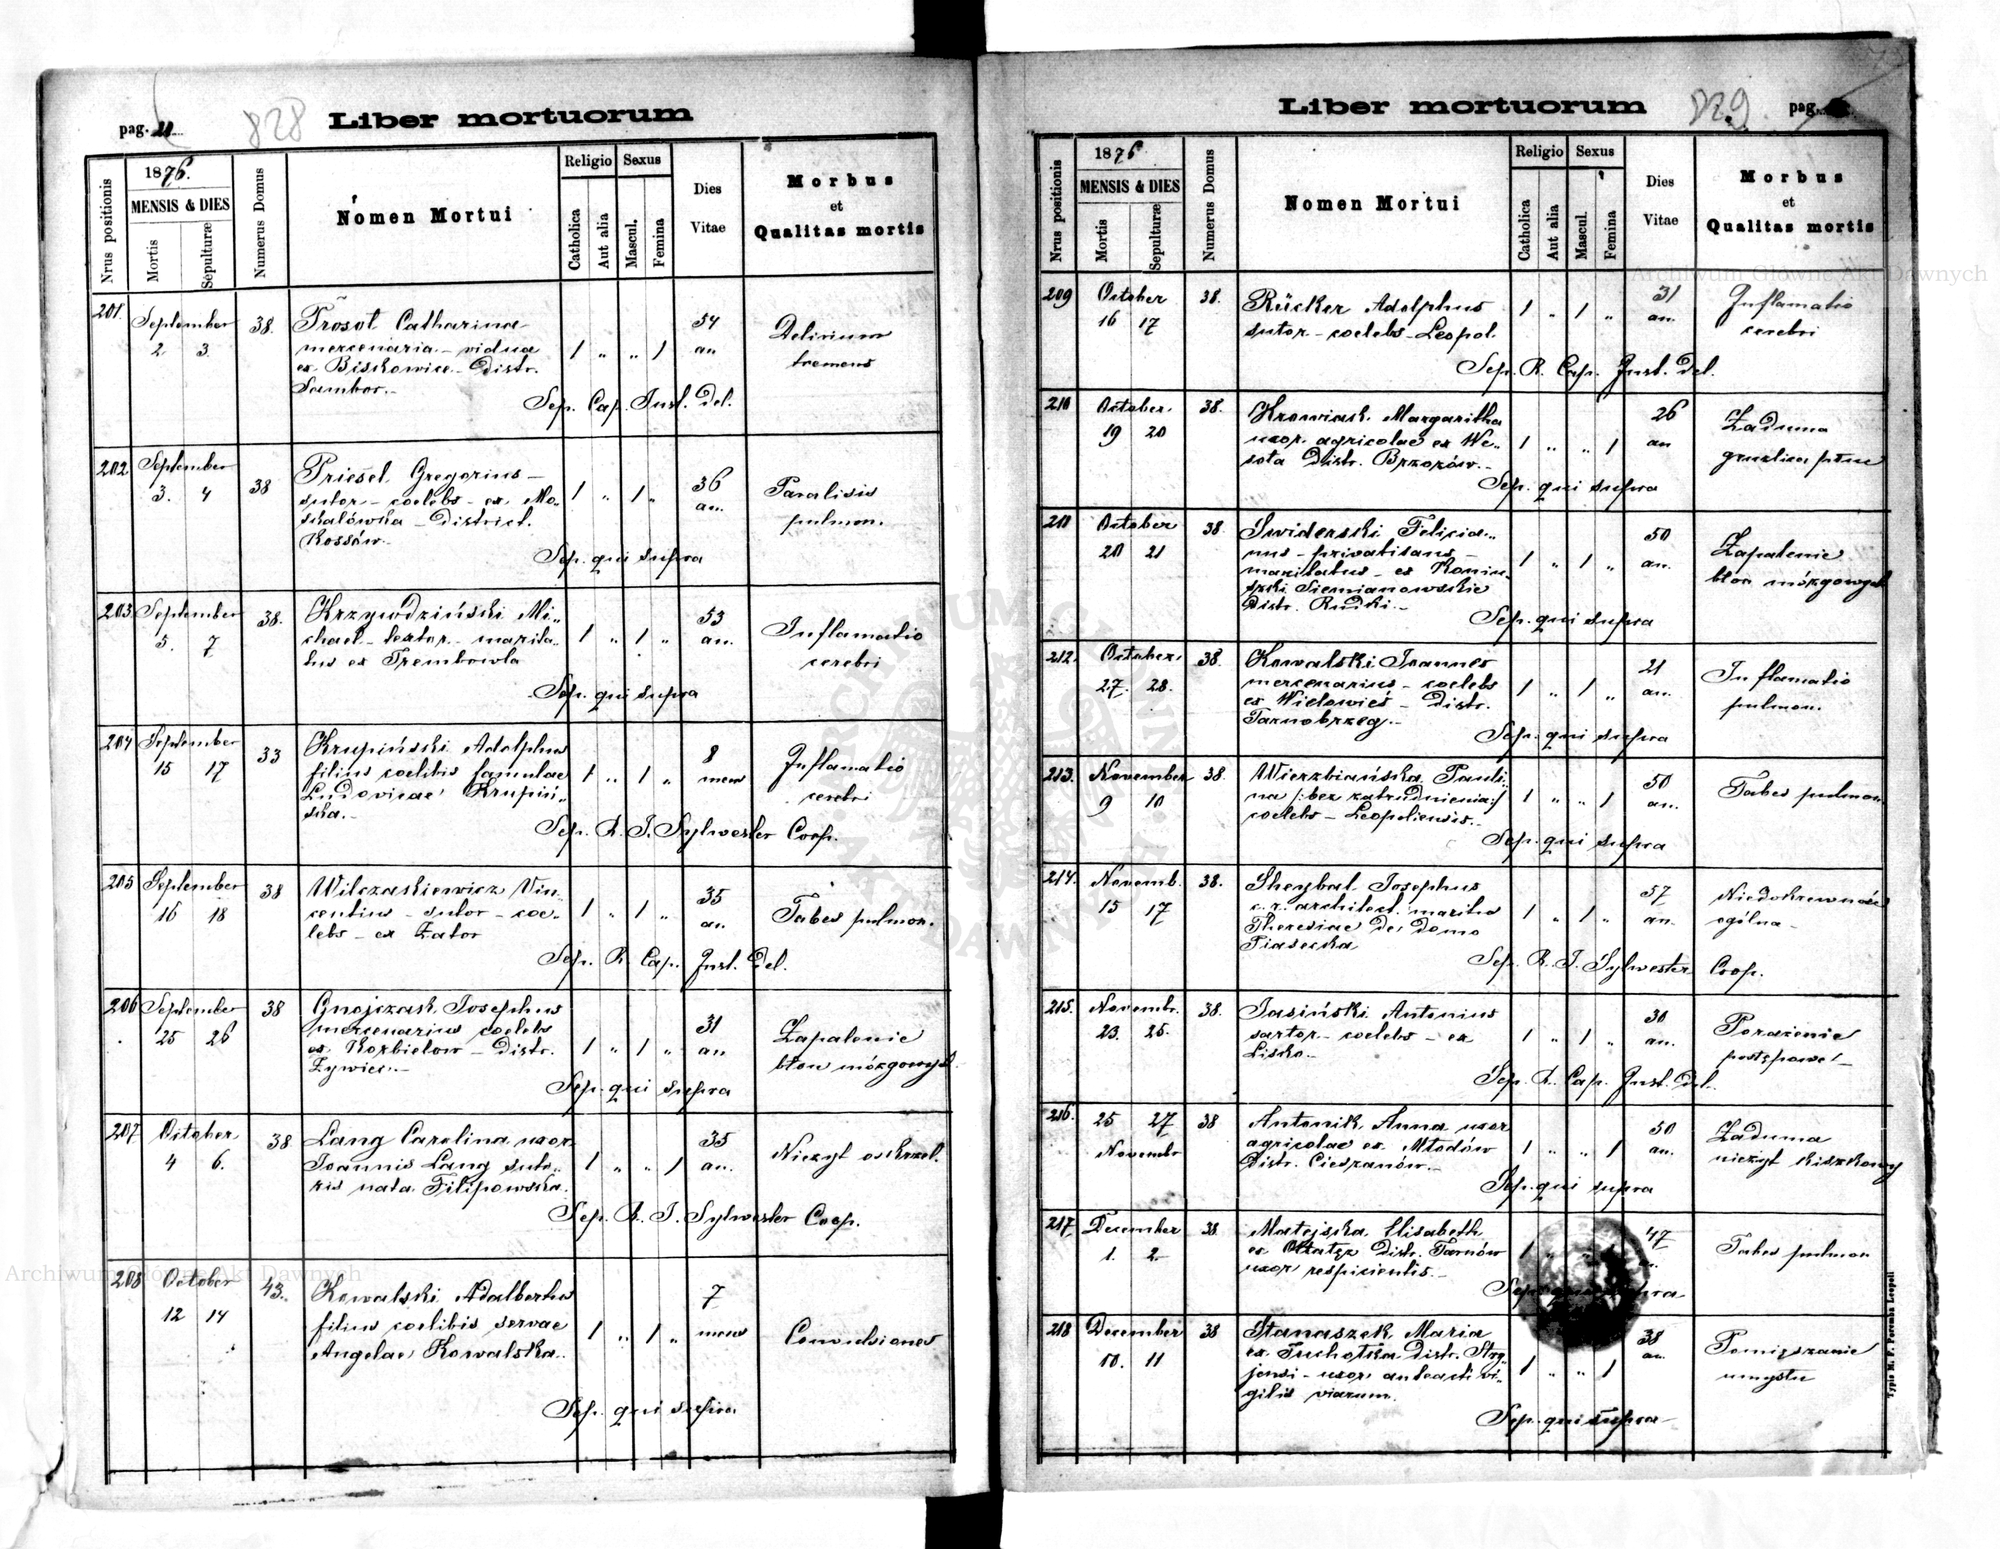 pag. 21
828
Liber mortuorum
Nrus positionis
1876.
MENSIS & DIES
Mortis
Sepulturæ
Numerus Domus
Nomen Mortui
Religio
Catholica
Aut alia
Sexus
Mascul.
Femina
Dies
Vitae
Morbus
et
Qualitas mortis
201. September 38. Prosol Catharina 54 Delirium
2. 3. mercenaria – vidua 1 „ „ 1 an tremens
ex Biskowice – Distr.
Sambor. –
Sep. Cap. Inst. Del.
202. September 38 Priesel Gregorius – 36 Paralisis
3. 4 sutor – coelebs – ex Mo- 1 „ 1 „ an. pulmon.
skalówka – District.
Kossów. –
Sep. qui supra
203. September 38. Krzywdziński Mi- 53 Inflamatio
5. 7 chael – textor – marita- 1 „ 1 „ an. cerebri
tus ex Trembowla
Sep. qui supra
204 September 33 Krupiński Adolphus 8 Inflamatio
15 17 filius coelibis famulae 1 „ 1 „ mens cerebri
Ludovicae Krupiń-
ska. –
Sep. R. J. Sylwester Coop.
205 September 38 Wilczaskiewicz Vin- 35 Tabes pulmon.
16 18 centius – sutor – coe- 1 „ 1 „ an.
lebs – ex Zator
Sep. R. Cap. Inst. Del.
206 September 38 Gnojczak Josephus 31 Zapalenie
25 26 mercenarius coelebs 1 „ 1 „ an błon mózgowych
ex Korbielow – Distr.
Żywiec. –
Sep. qui supra
207 October 38 Lang Carolina uxor 35 Nieżyt oskrzel.
4 6. Joannis Lang suto- 1 „ „ 1 an.
ris nata Filipowska.
Sep. R. J. Sylwester Coop.
208 October 43. Kowalski Adalbertus 7 Convulsiones
12 14 filius coelibis servae 1 „ 1 „ mens
Angelae Kowalska.
Sep. qui supra
Liber mortuorum
829.
pag.
Nrus positionis
1876
MENSIS & DIES
Mortis
Sepulturæ
Numerus Domus
Nomen Mortui
Religio
Catholica
Aut alia
Sexus
Mascul.
Femina
Dies
Vitae
Morbus
et
Qualitas mortis
209 October 38. Rücker Adolphus 31 Inflamatio
16 17 sutor – coelebs – Leopol. 1 „ 1 „ an. cerebri
Sep. R. Cap. Inst. Del.
210 October. 38. Krowiak Margaritha 26 Zaduma
19 20 uxor agricolae ex We- 1 „ „ 1 an gruzlica płuc
soła Distr. Brzozów. –
Sep. qui supra
211 October 38. Swiderski Felicia- 50 Zapalenie
20 21 nus – privatisans – 1 „ 1 „ an. błon mózgowych
maritatus – ex Koniu-
szki Siemianowskie
Distr. Rudki. –
Sep. qui supra
212. October. 38. Kowalski Joannes 21 Inflamatio
27. 28. mercenarius – coelebs 1 „ 1 „ an. pulmon.
ex Wielowieś – Distr.
Tarnobrzeg. –
Sep. qui supra
213. November 38. Wierzbiańska Pauli- 50 Tabes pulmon
9 10 na /: bez zatrudnienia :/ 1 „ „ 1 an.
coelebs – Leopoliensis. –
Sep. qui supra
214. Novemb. 38. Sheybal Josephus 57 Niedokrewność
15 17 c. r. architect. maritus 1 „ 1 „ an. ogólna –
Theresiae de domo
Piasecka
Sep. R. J. Sylwester Coop.
215. Novembr. 38. Jasiński Antonius 30 Porażenie
23. 25. sartor – coelebs – ex 1 „ 1 „ an. postępowe! –
Lisko. –
Sep. R. Cap. Inst. Del.
216. 25 27 38 Antonik Anna uxor 50 Zaduma
Novembr agricolae ex Młodów 1 „ „ 1 an. nieżyt kiszkowy
Distr. Cieszanów. –
Sep. qui supra
217. December 38 Matejska Elisabeth 47 Tabes pulmon
1. 2. ex Distr. Tarnów 1
uxor respicientis. –
Sep. qui supra
218 December 38 Stanaszek Maria 38 Pomięszanie
10. 11 ex Tuchołka Distr. Stry- 1 „ „ 1 an. umysłu
jensi – uxor anteacti vi-
gilis viarum.
Sep. qui supra –
Typis M. F. Poremba Leopoli
Archiwum Główne Akt Dawnych
Archiwum Główne Akt Dawnych
ARCHIWUM GŁÓWNE AKT DAWNYCH